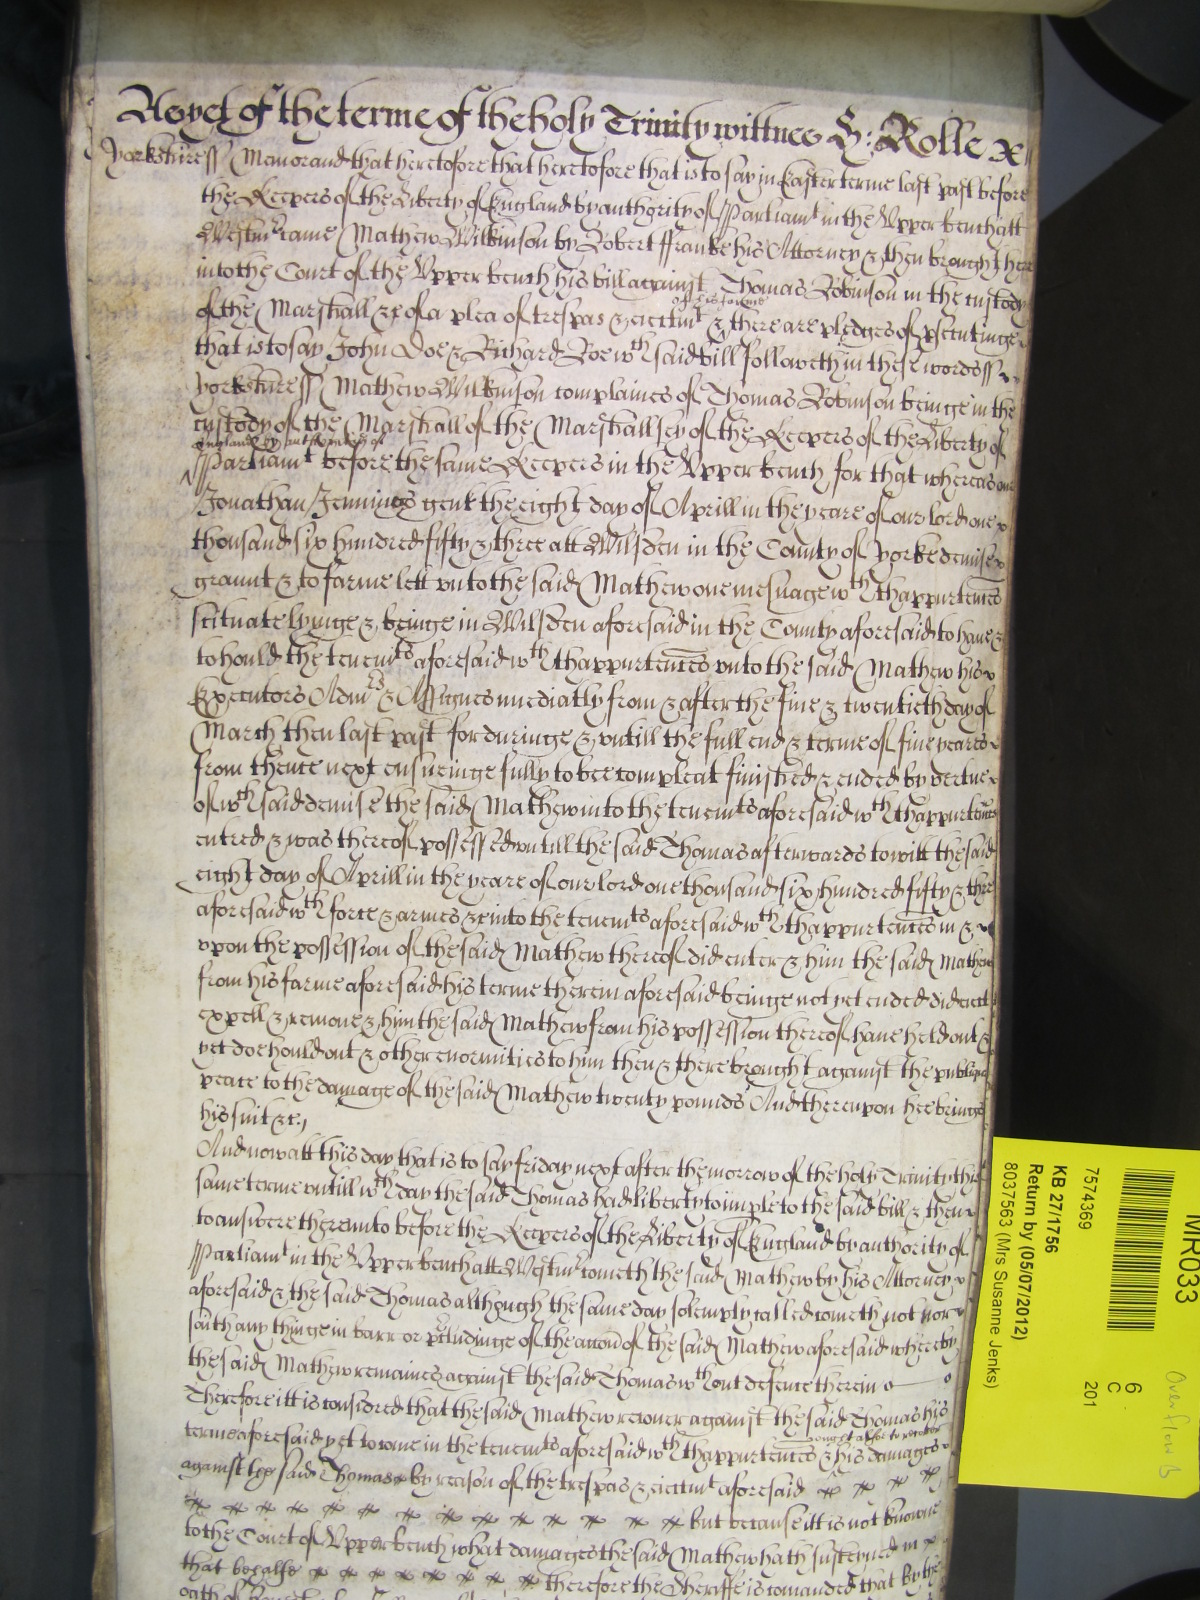 Aoyet of the terme of the holy Trinity wittnes H: Rolle
Yorkshire ss Memorand that heretofore that heretofore that is to say in Easter terme last past before
the Keepers of the Liberty of England by authority of Parliamt in the Upper bench att
Westmr came Mathew Wilkinson by Robert ffranke his Attorney & then brought here
into the Court of the Upper bench his bill against Thomas Robinson in the custody
of his farme
of the Marshall &c of a plea of trespas & eieccmt & there are pledges of psecutinge
that is to say John Doe & Richard Roe wch said bill followeth in these words ss
Yorkshire ss Mathew Wilkinson complaines of Thomas Robinson beinge in the
custody of the Marshall of the Marshallsey of the Keepers of the Liberty of
England by authority of
Parliamt before the same Keepers in the Upper bench for that whereas one
Jonathan Jennings gent the eight day of Aprill in the yeare of our lord one
thousand six hundred fifty & three att Wilsden in the County of Yorke demise
graunt & to farme lett unto the said Mathew one mesuage wth thappurtennces
scituate lyinge & beinge in Wilsden aforesaid in the County aforesaid to have &
to hould the tenemts aforesaid wth thappurtennces unto the said Mathew his
Executors Admrs & Assignes imediatly from & after the five & twentieth day of
March then last past for duringe & untill the full end & terme of five yeares
from thence next ensueinge fully to bee compleat finished & ended by vertue
of wch said demise the said Mathew into the tenemts aforesaid wth thappurtennces
entred & was thereof possessed untill the said Thomas afterwards to witt the said
eight day of Aprill in the yeare of our lord one thousand six hundred fifty & three
aforesaid wth force & armes &c into the tenemts aforesaid wth thappurtennces in &
upon the possession of the said Mathew thereof did enter & him the said Mathew
from his farme aforesaid his terme therein aforesaid beinge not yet ended did eiect
expell & remove & him the said Mathew from his possession thereof have held out &
yet doe hould out & other enormities to him then & there brought against the publique
peace to the damage of the said Mathew twenty pounds And thereupon hee brings
his suit &c
And now att this day that is to say friday next after the morrow of the holy Trinity this
same terme untill wch day the said Thomas had liberty to imple to the said bill & then
to answere thereunto before the Keepers of the Liberty of England by authority of
Parliamt in the Upper bench att Westmr cometh the said Mathew by his Attorney
aforesaid & the said Thomas although the same day solemply called cometh not nor
saith any thinge in barr or pcludinge of the accon of the said Mathew aforesaid whereby
the said Mathew remaines against the said Thomas wthout defence therein
Therefore itt is considred that the said Mathew recover against the said Thomas his
terme aforesaid yet to come in the tenemts aforesaid wth thappurtennces & his damages
ought alsoe to recover
against the said Thomas by reason of the trespas & eieccmt aforesaid
but because itt is not knowne
to the Court of Upper bench what damages the said Mathew hath susteyned in
that behalfe therefore the Sheriffe is comanded that by the
oath of
MR033
7574369
KB 27/1756
Return by (05/07/2012)
8037563 (Mrs Susanne Jenks)
6
C
201
Overflow B